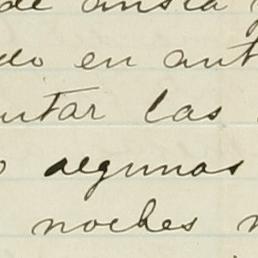 de ansia
do en ant
utar las
o algunas
noches